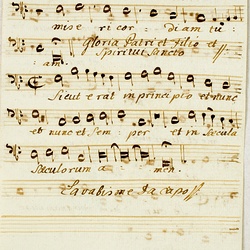 mise ri cor : di am tu :
Gloria Patri et Filio et
Spiritui Sancto
am.
Sicut e rat in princi pio et nunc
et nunc et sem : per et in sæcula
sæculorum a : men.
Lavabis me Da capo